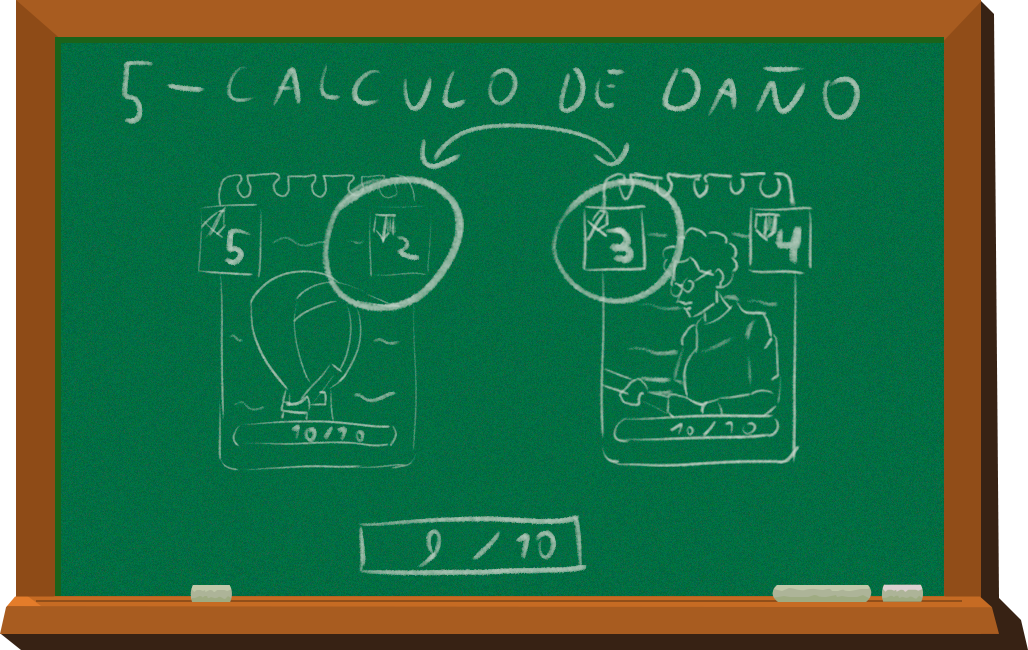 5-CALCULO DE DAÑO
5 2 3 4
10/10 10/10
9/10